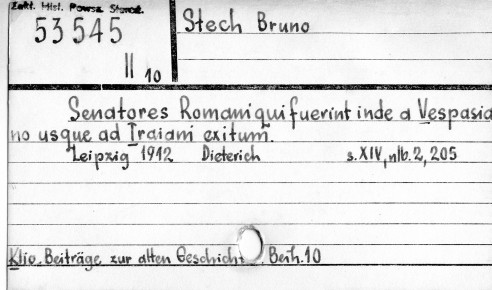 Zakł. Hist. Powsz. Staroż.
53545
II 10
Stech Bruno
Senatores Romani qui fuerint inde a Vespasia
no usque ad Traiani exitum.
Leipzig 1912 Dieterich s. XIV, nlb. 2, 205
Klio. Beiträge zur alten Geschicht . Beih. 10